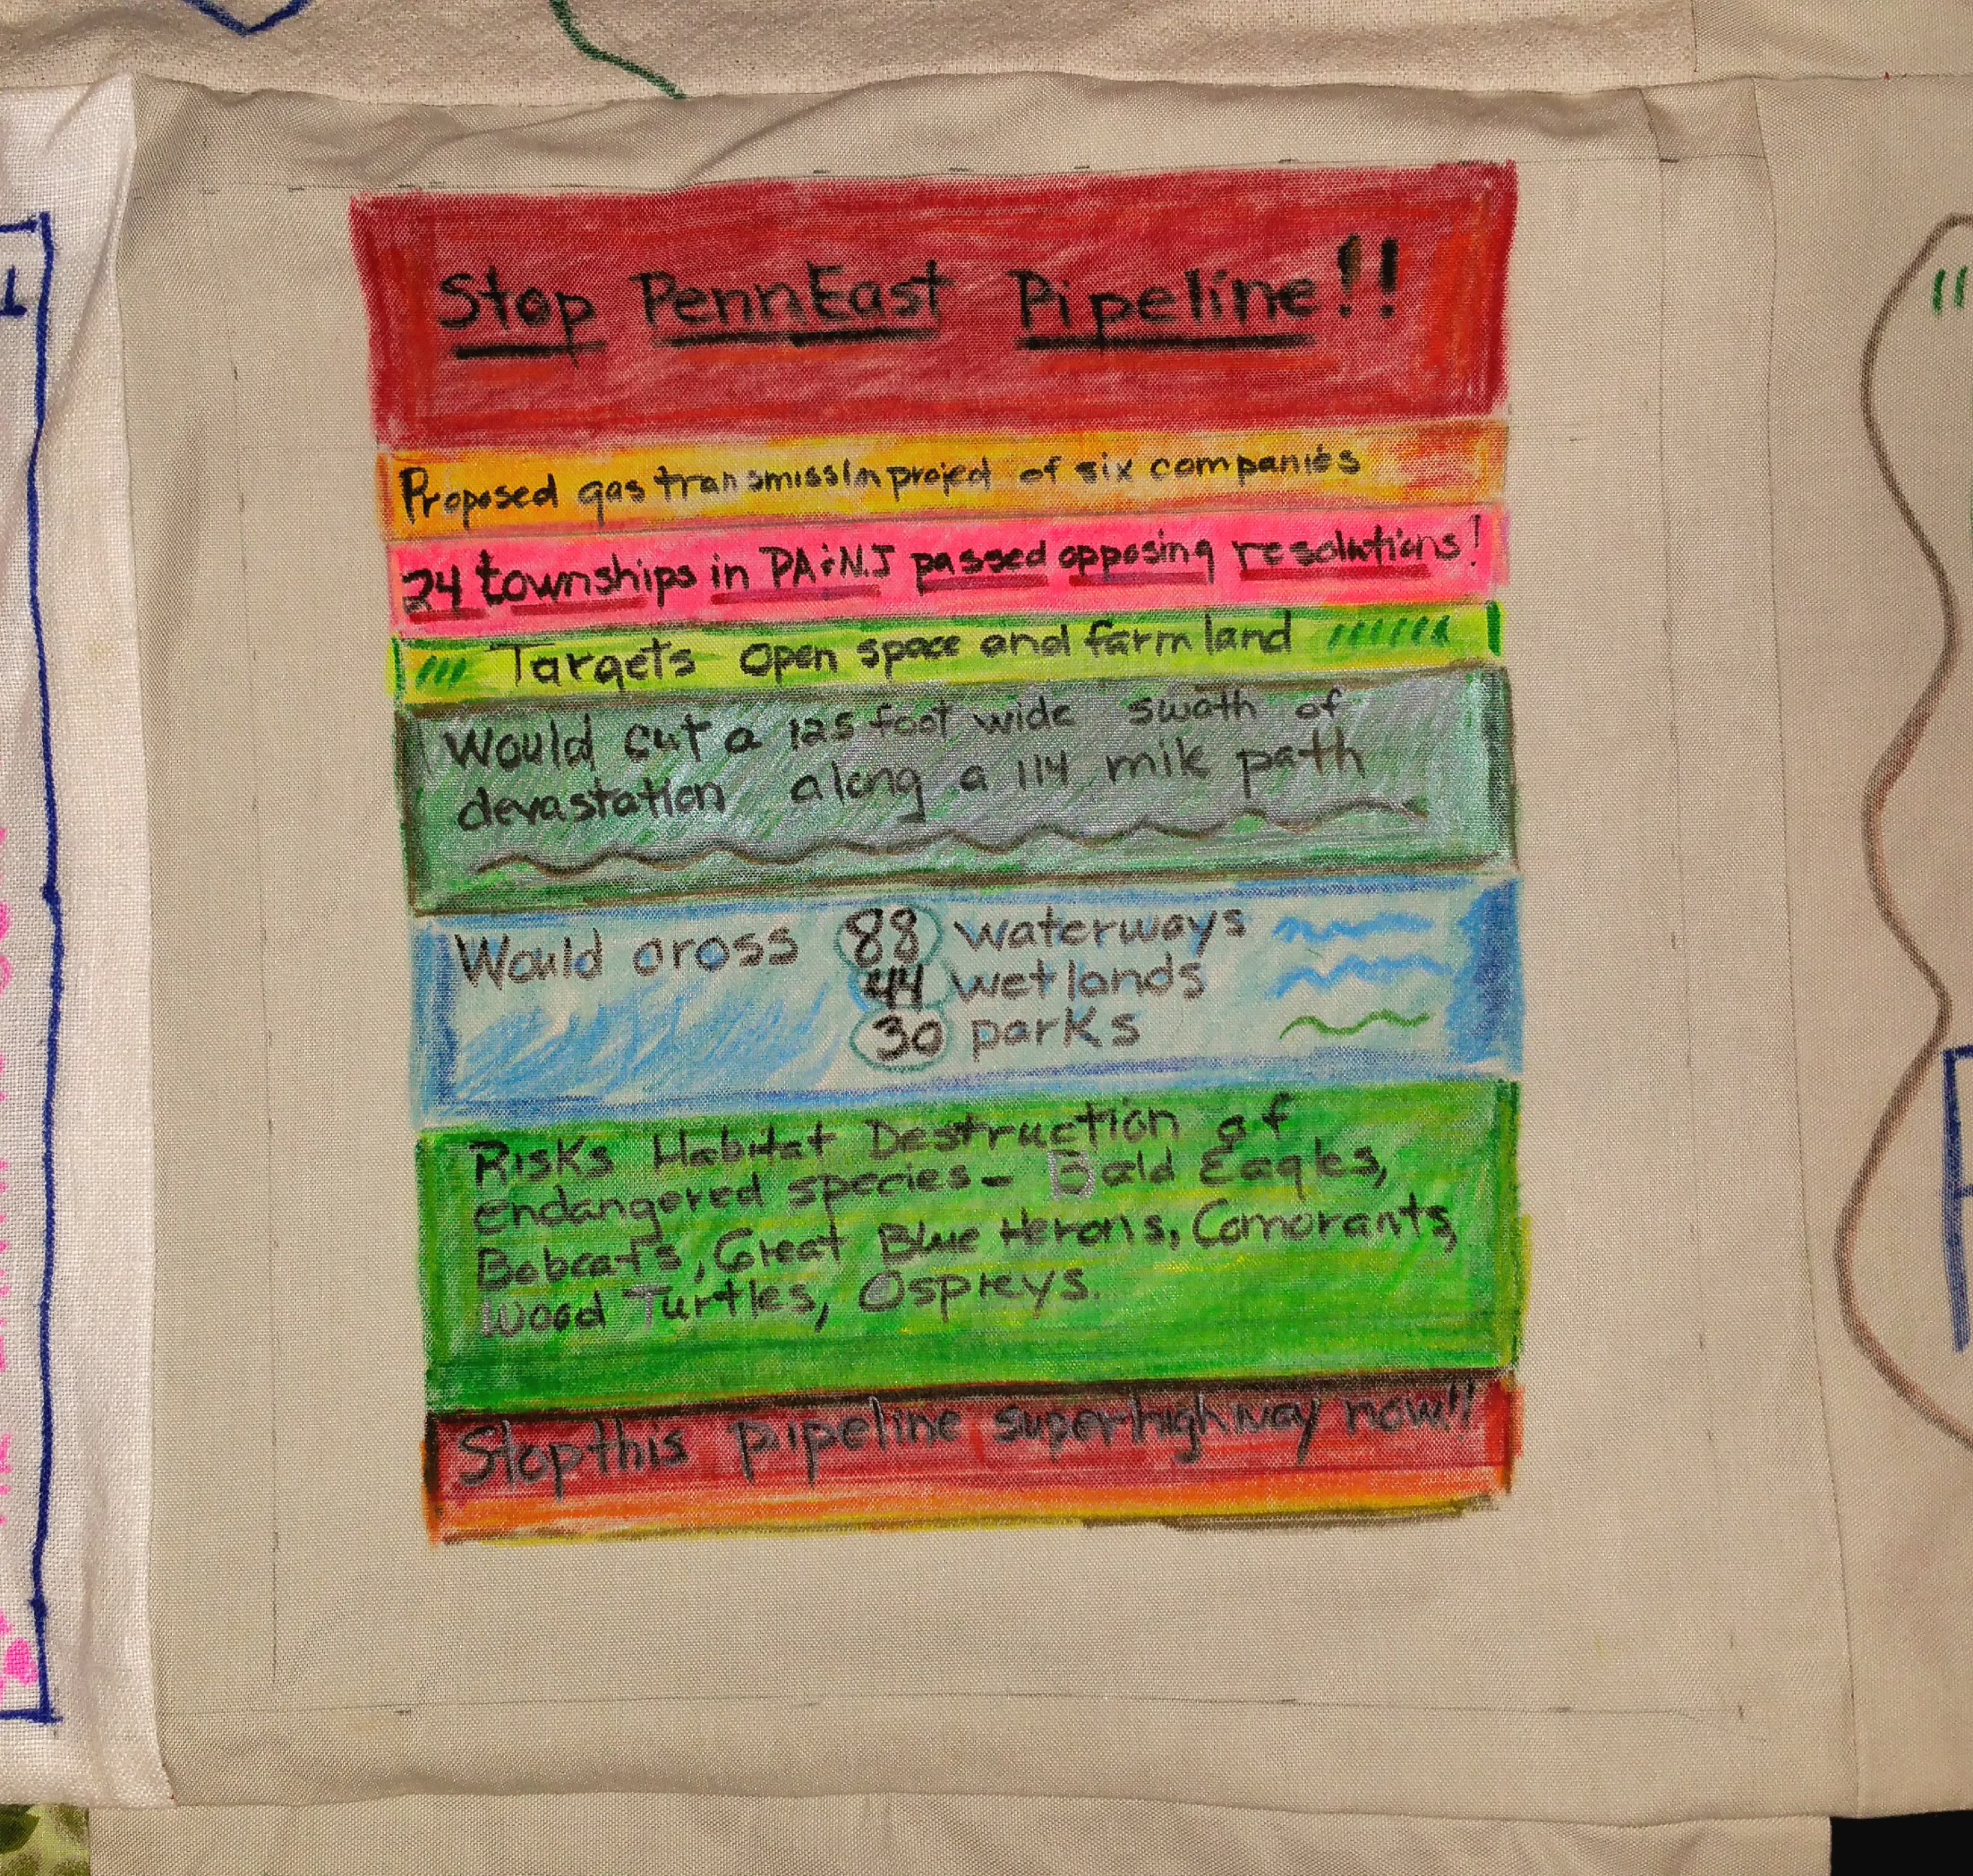 Stop PennEast Pipeline!!
Proposed gas transmissin project of six companies
24 townships in PA & NJ passed opposing resolutions!
Targets open space and farm land
Would cut a 125 foot wide swath of
devastation along a 114 mile path
Would cross 88 waterways
44 wetlands
30 parks
Risks Habitat Destruction of
endangered species - Bald Eagles,
Bobcats, Great Blue Herons, Comorants,
Wood Turtles, Ospreys.
Stop this pipeline superhighway now!!